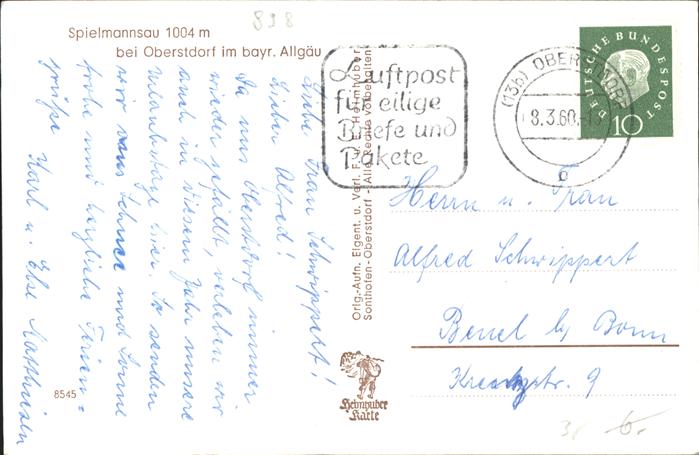 898
Spielmannsau 1004 m
bei Oberstdorf im bayr. Allgäu
Liebe Frau Schwippert!
Lieber Alfred!
Da uns Oberstdorf immer
wieder gefällt, verleben wir
auch in diesem Jahr unsere
Urlaubstage hier. So senden
wir aus Schnee und Sonne
frohe und herzliche Ferien=
grüße Karl u. Else Matthiesen
8545
Orig.-Aufn. Eigent. u. Verl. F. u. E. Heimhuber
Sonthofen-Oberstdorf - Alle Rechte vorbehalten
Heimhuber
Karte
Luftpost
für eilige
Briefe und
Pakete
(13b) OBERSTDORF
8.3.60.
b
DEUTSCHE BUNDESPOST
10
Herrn u. Frau
Alfred Schwippert
Beuel b/ Bonn
Kreuzstr. 9